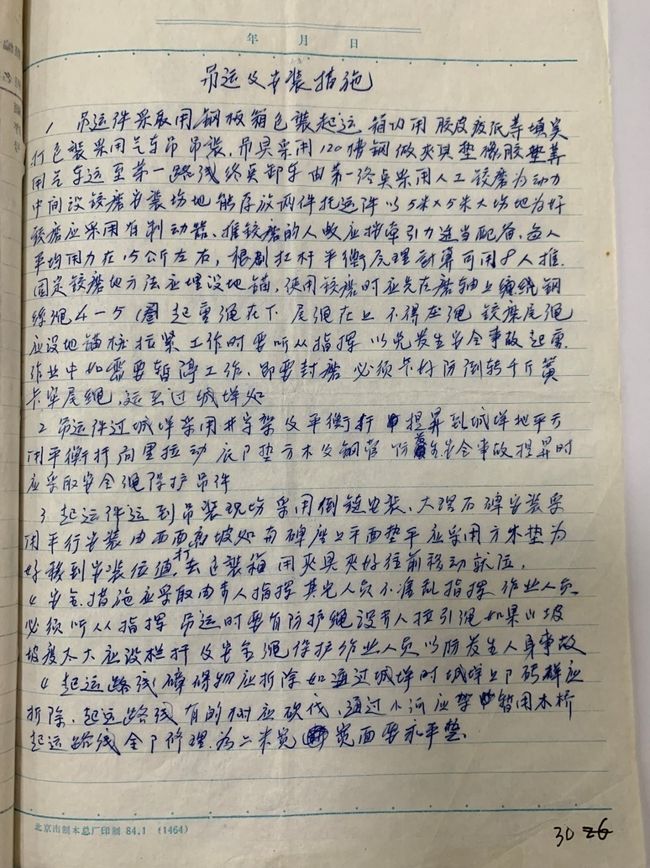 年 月 日
吊运及安装措施
1 吊运件采取用钢板箱包装起运 箱内用胶皮废纸等填实
打包装采用汽车吊吊装, 吊具采用120槽钢做夹具垫橡胶垫等
用汽车运至第一路线终点卸车 由第一终点采用人工铰磨为动力
中间设铰磨安装场地 能存放两件托运件 以5米×5米大场地为好
铰磨应采用有制动器, 推铰磨的人数应按牵引力适当配备, 每人
平均用力在15公斤左右, 根剧扛杆平衡原理计算可用8人推.
固定铰磨地方法应埋设地锚, 使用铰磨时应先在磨轴上缠绕钢
丝绳4-5圈 起重绳在下 尾绳在上 不得压绳 铰磨尾绳
应设地锚桩拉紧 工作时要听从指挥 以免发生安全事故 起重
作业中如需要暂停工作, 即要封磨 必须卡好防倒转千斤簧
卡牢尾绳, 运至过城墙处
2 吊运件过城墙采用井字架及平衡杆 提升到城墙地平方
用平衡杆向里拉动 底下垫方木及钢管 防发生安全事故 提升时
应采取安全绳保护吊件
3 起运件运到吊装现场采用倒链安装, 大理石碑安装采
用平行安装 由西面高坡处向碑座上平面垫平应采用方木垫为
好 移到安装位置, 打去包装箱 用夹具夹好往前移动就位,
4 安全措施应采取由专人指挥 其它人员不准乱指挥 作业人员
必须听从指挥 吊运时要有防护绳设专人拉引绳 如果山坡
坡度太大应设栏杆及安全绳保护作业人员 以防发生人身事故
4 起运路线障碍物应拆除 如通过城墙时城墙上下砖群应
拆除, 起运路线有的树应砍伐, 通过小河应架暂用木桥
起运路线全下修理, 为二米宽 宽面要求平垫.
北京市制本总厂印制 84.1 (1464)
30 26